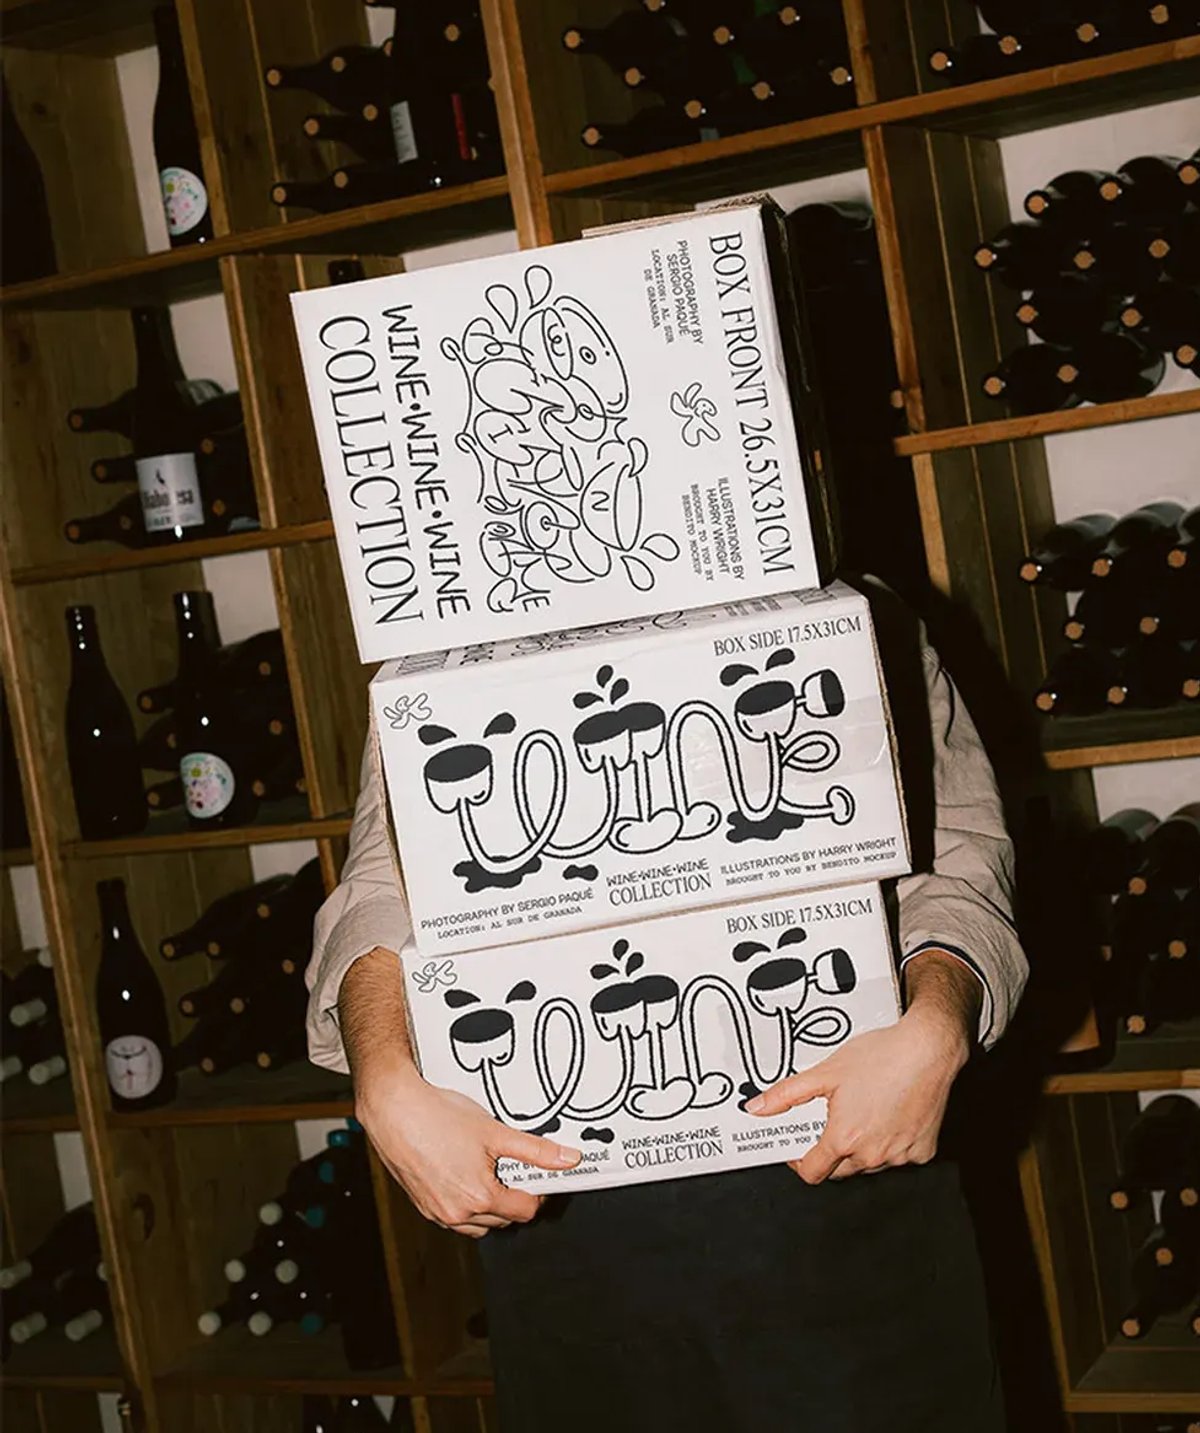 BOX FRONT 26.5X31CM
PHOTOGRAPHY BY
SERGIO PAQUÉ
LOCATION: AL SUR
DE GRANADA
ILLUSTRATIONS BY
HARRY WRIGHT
BROUGHT TO YOU BY
BENDITO MOCKUP
WINE•WINE•WINE
COLLECTION
BOX SIDE 17.5X31CM
WINE
PHOTOGRAPHY BY SERGIO PAQUÉ
LOCATION: AL SUR DE GRANADA
WINE•WINE•WINE
COLLECTION
ILLUSTRATIONS BY HARRY WRIGHT
BROUGHT TO YOU BY BENDITO MOCKUP
BOX SIDE 17.5X31CM
WINE
APHY BY
PAQUÉ
: AL SUR DE GRANADA
WINE•WINE•WINE
COLLECTION
ILLUSTRATIONS BY
BROUGHT TO YOU